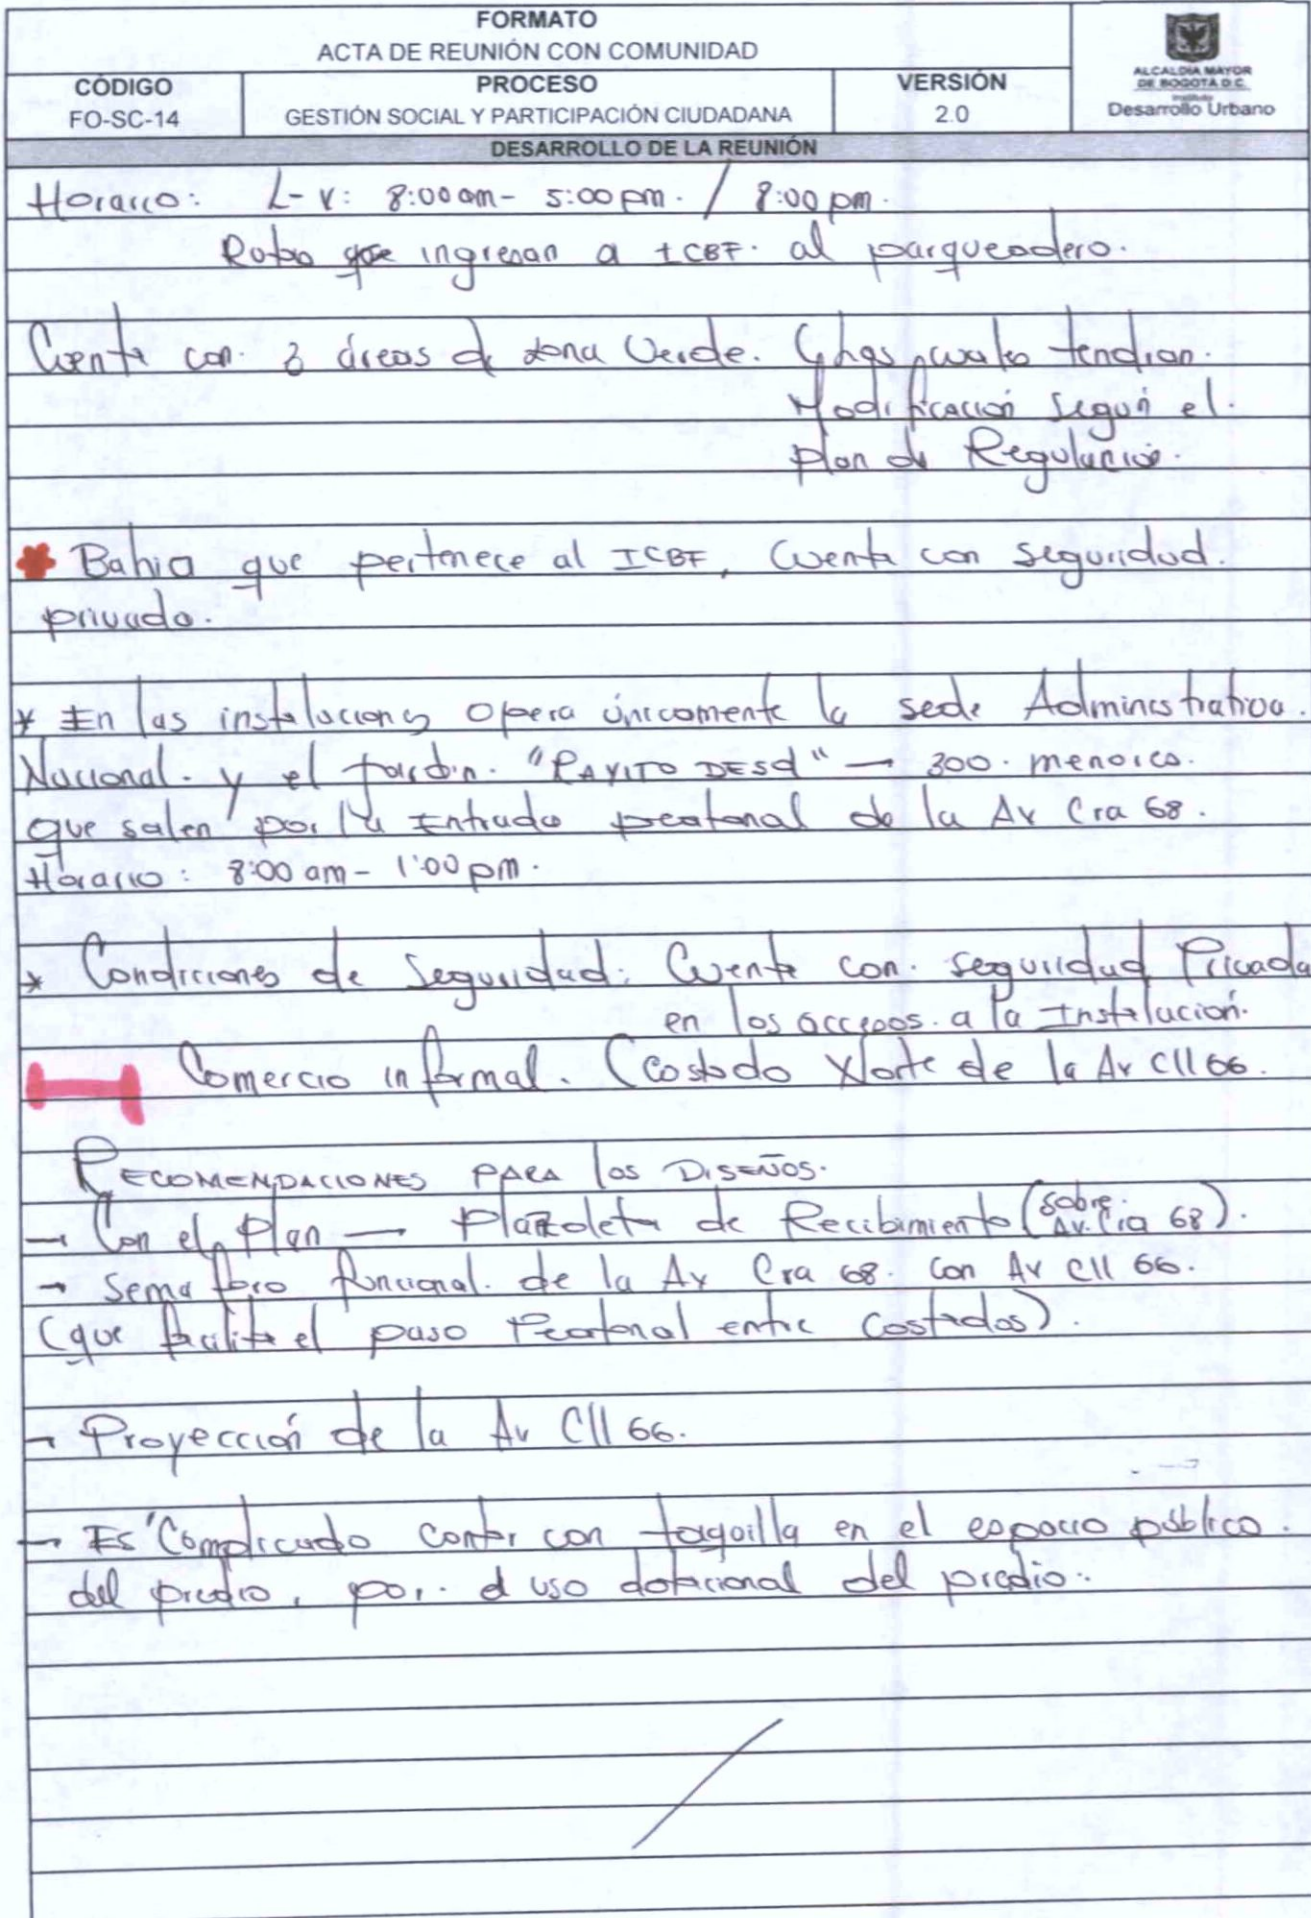 FORMATO
ACTA DE REUNIÓN CON COMUNIDAD
CÓDIGO
FO-SC-14
PROCESO
GESTIÓN SOCIAL Y PARTICIPACIÓN CIUDADANA
VERSIÓN
2.0
ALCALDÍA MAYOR
DE BOGOTÁ D.C.
Instituto
Desarrollo Urbano
DESARROLLO DE LA REUNIÓN
Horario: L-V: 8:00 am - 5:00 pm. / 8:00 pm.
ingresan a ICBF. al parqueadero.
Cuenta con. áreas de zona Verde. tendrian.
Modificación según el.
plan de Regulación.
* Bahia que pertenece al ICBF, Cuenta con seguridad.
privada.
* En las instalaciones Opera únicamente la sede Administrativa.
Nacional. y el jardin. "RAYITO DE SOL" → 300. menores.
que salen por la Entrada peatonal de la Av Cra 68.
Horario: 8:00 am - 1:00 pm.
* Condiciones de Seguridad: Cuenta con. seguridad Privada
en los accesos. a la Instalación.
Comercio informal. (costado Norte de la Av Cll 66.
RECOMENDACIONES PARA los DISEÑOS.
→ Con el Plan → Plazoleta de Recibimiento (sobre. Av. Cra 68).
→ Semaforo funcional. de la Av Cra 68. con Av Cll 66.
(que facilite el paso Peatonal entre Costados).
→ Proyección de la Av Cll 66.
→ Es Complicado contar con taquilla en el espacio público.
del predio, por. el uso dotacional del predio.